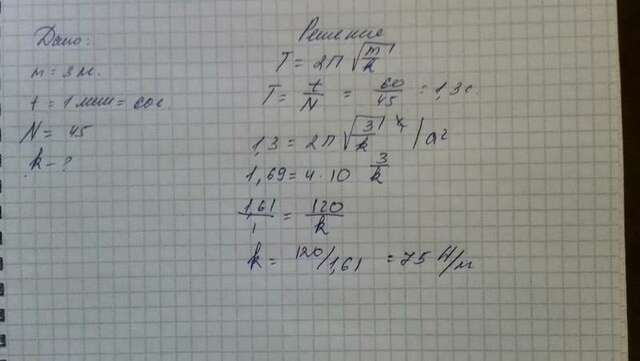 Дано:
m = 3 кг.
t = 1 мин = 60с.
N = 45
k - ?
Решение
T = 2П √m/k
T = t/N = 60/45 = 1,3с.
1,3 = 2П √3/k | ()²
1,69 = 4 · 10 3/k
1,61/1 = 120/k
k = 120/1,61 = 75 Н/м